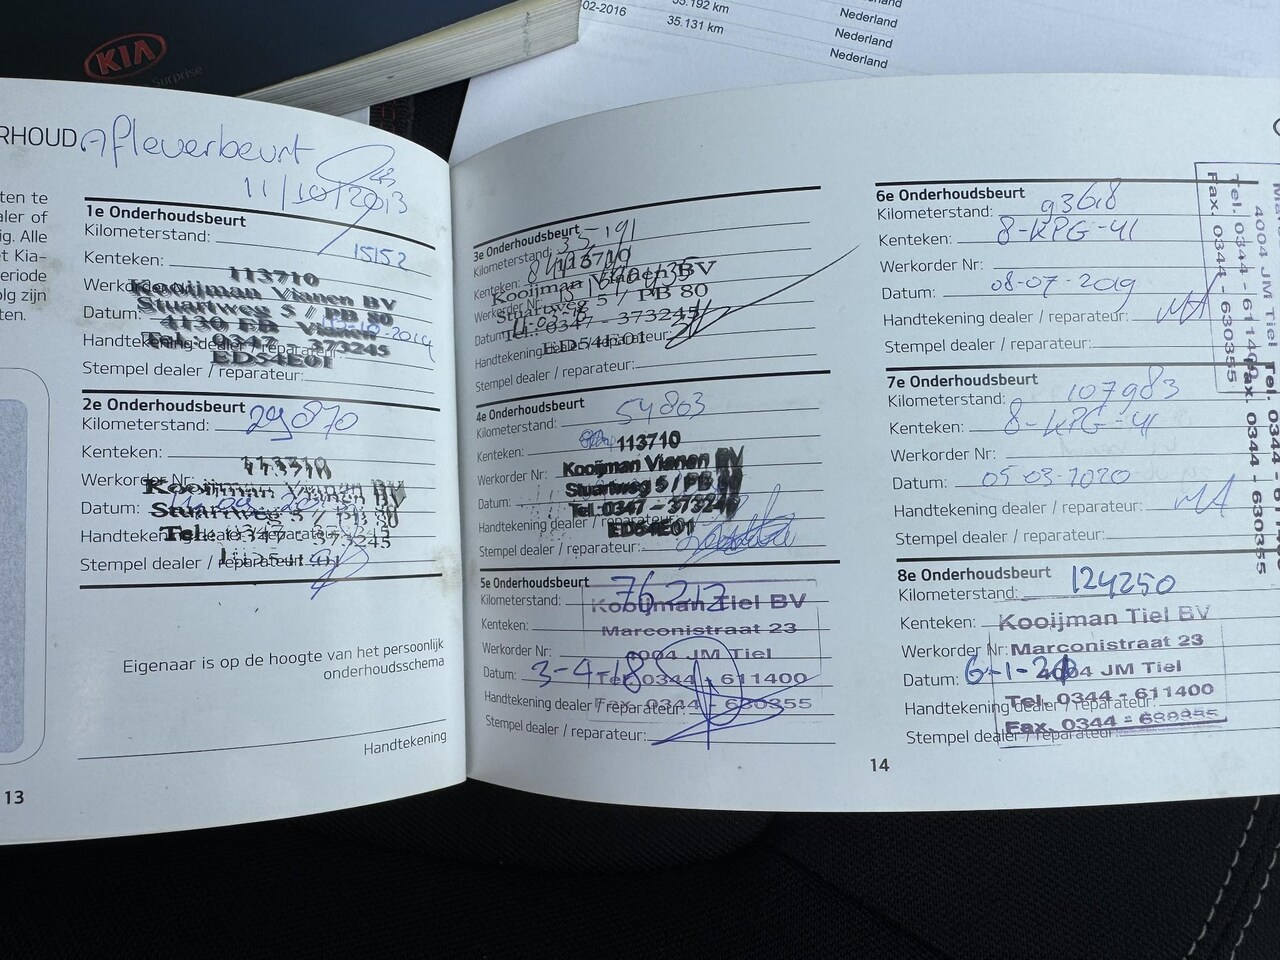 KIA
Surprise
02-2016
35.192 km
35.131 km
Nederland
Nederland
Nederland
RHOUD Afleverbeurt
11/10/2013
ten te
aler of
ig. Alle
et Kia-
eriode
olg zijn
ten.
1e Onderhoudsbeurt
Kilometerstand: 15152
Kenteken:
113710
Kooijman Vianen BV
Stuartweg 5 / PB 80
Datum:
4130 EB Vianen
Handtekening dealer / reparateur:
Tel.: 0347 - 373245
ED54E01
Stempel dealer / reparateur:
2e Onderhoudsbeurt
Kilometerstand: 29870
Kenteken:
113710
Werkorder Nr:
Kooijman Vianen BV
Datum:
Stuartweg 5 / PB 80
Handtekening dealer / reparateur:
Tel.: 0347 - 373245
Stempel dealer / reparateur:
Eigenaar is op de hoogte van het persoonlijk
onderhoudsschema
Handtekening
13
3e Onderhoudsbeurt
Kilometerstand: 35191
Kenteken:
113710
Kooijman Vianen BV
Werkorder Nr:
Stuartweg 5 / PB 80
Datum:
Tel.: 0347 - 373245
Handtekening dealer / reparateur:
ED54E01
Stempel dealer / reparateur:
4e Onderhoudsbeurt
Kilometerstand: 54803
Kenteken:
113710
Kooijman Vianen BV
Werkorder Nr:
Stuartweg 5 / PB 80
Datum:
Tel.: 0347 - 373245
Handtekening dealer / reparateur:
ED54E01
Stempel dealer / reparateur:
5e Onderhoudsbeurt
Kilometerstand: 76212
Kooijman Tiel BV
Kenteken:
Marconistraat 23
Werkorder Nr:
4004 JM Tiel
Datum: 3-4-18
Tel. 0344 - 611400
Handtekening dealer / reparateur:
Fax. 0344 - 630355
Stempel dealer / reparateur:
6e Onderhoudsbeurt
Kilometerstand: 93618
Kenteken: 8-KPG-41
Werkorder Nr:
Datum: 08-07-2019
Handtekening dealer / reparateur:
Stempel dealer / reparateur:
4004 JM Tiel
Tel. 0344 - 611400
Fax. 0344 - 630355
7e Onderhoudsbeurt
Kilometerstand: 107983
Kenteken: 8-KPG-41
Werkorder Nr:
Datum: 05-03-2020
Handtekening dealer / reparateur:
Stempel dealer / reparateur:
Fax. 0344 - 630355
8e Onderhoudsbeurt
Kilometerstand: 124250
Kenteken:
Kooijman Tiel BV
Werkorder Nr:
Marconistraat 23
Datum:
4004 JM Tiel
Tel. 0344 - 611400
Handtekening dealer / reparateur:
Fax. 0344 - 630355
Stempel dealer / reparateur:
14